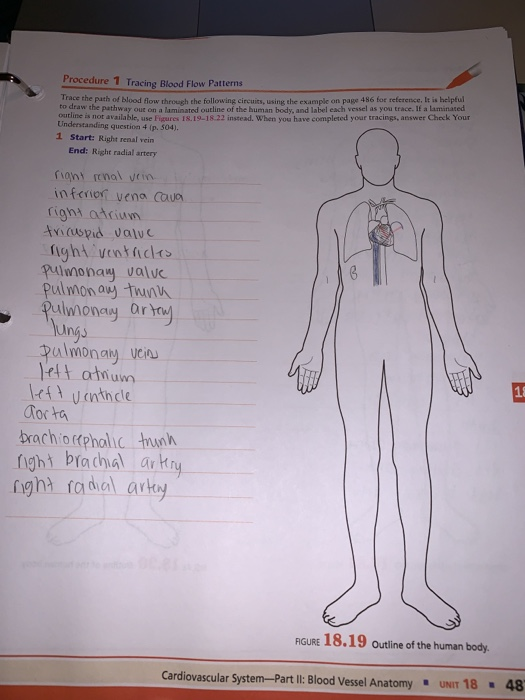 Procedure 1 Tracing Blood Flow Patterns
Trace the path of blood flow through the following circuits, using the example on page 486 for reference. It is helpful
to draw the pathway out on a laminated outline of the human body, and label each vessel as you trace. If a laminated
outline is not available, use Figures 18.19–18.22 instead. When you have completed your tracings, answer Check Your
Understanding question 4 (p. 504).
1 Start: Right renal vein
End: Right radial artery
right renal vein
inferior vena cava
right atrium
tricuspid valve
right ventricles
pulmonary valve
pulmonary trunk
pulmonary artery
lungs
pulmonary veins
left atrium
left ventricle
aorta
brachiocephalic trunk
right brachial artery
right radial artery
18
FIGURE 18.19 Outline of the human body.
Cardiovascular System—Part II: Blood Vessel Anatomy ■ UNIT 18 ■ 48